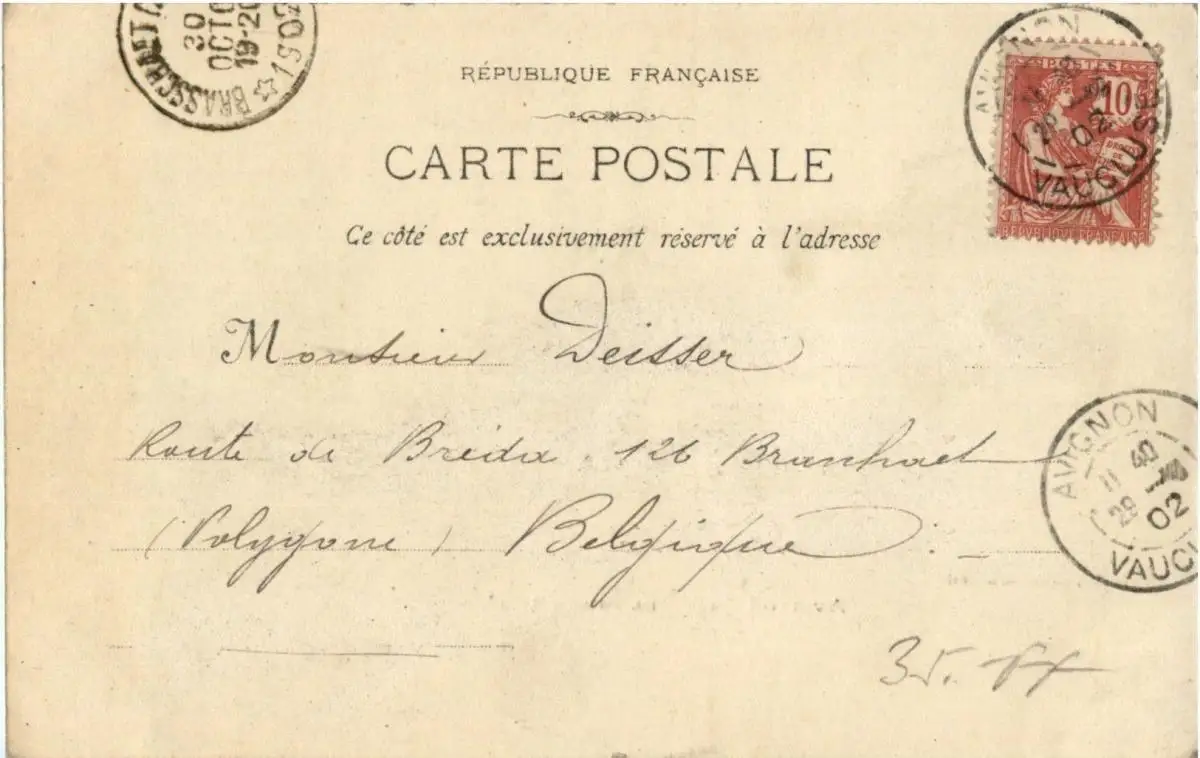 BRASSCHAET
30
OCTO
19-20
1902
RÉPUBLIQUE FRANÇAISE
CARTE POSTALE
Ce côté est exclusivement réservé à l'adresse
POSTES
10
RÉPUBLIQUE FRANÇAISE
AVIGNON
02
VAUCLUSE
Monsieur Deisser
Route de Bréda 126 Branhaet
(Polygone) Belgique.
AVIGNON
11 40
29
02
VAUC
35.